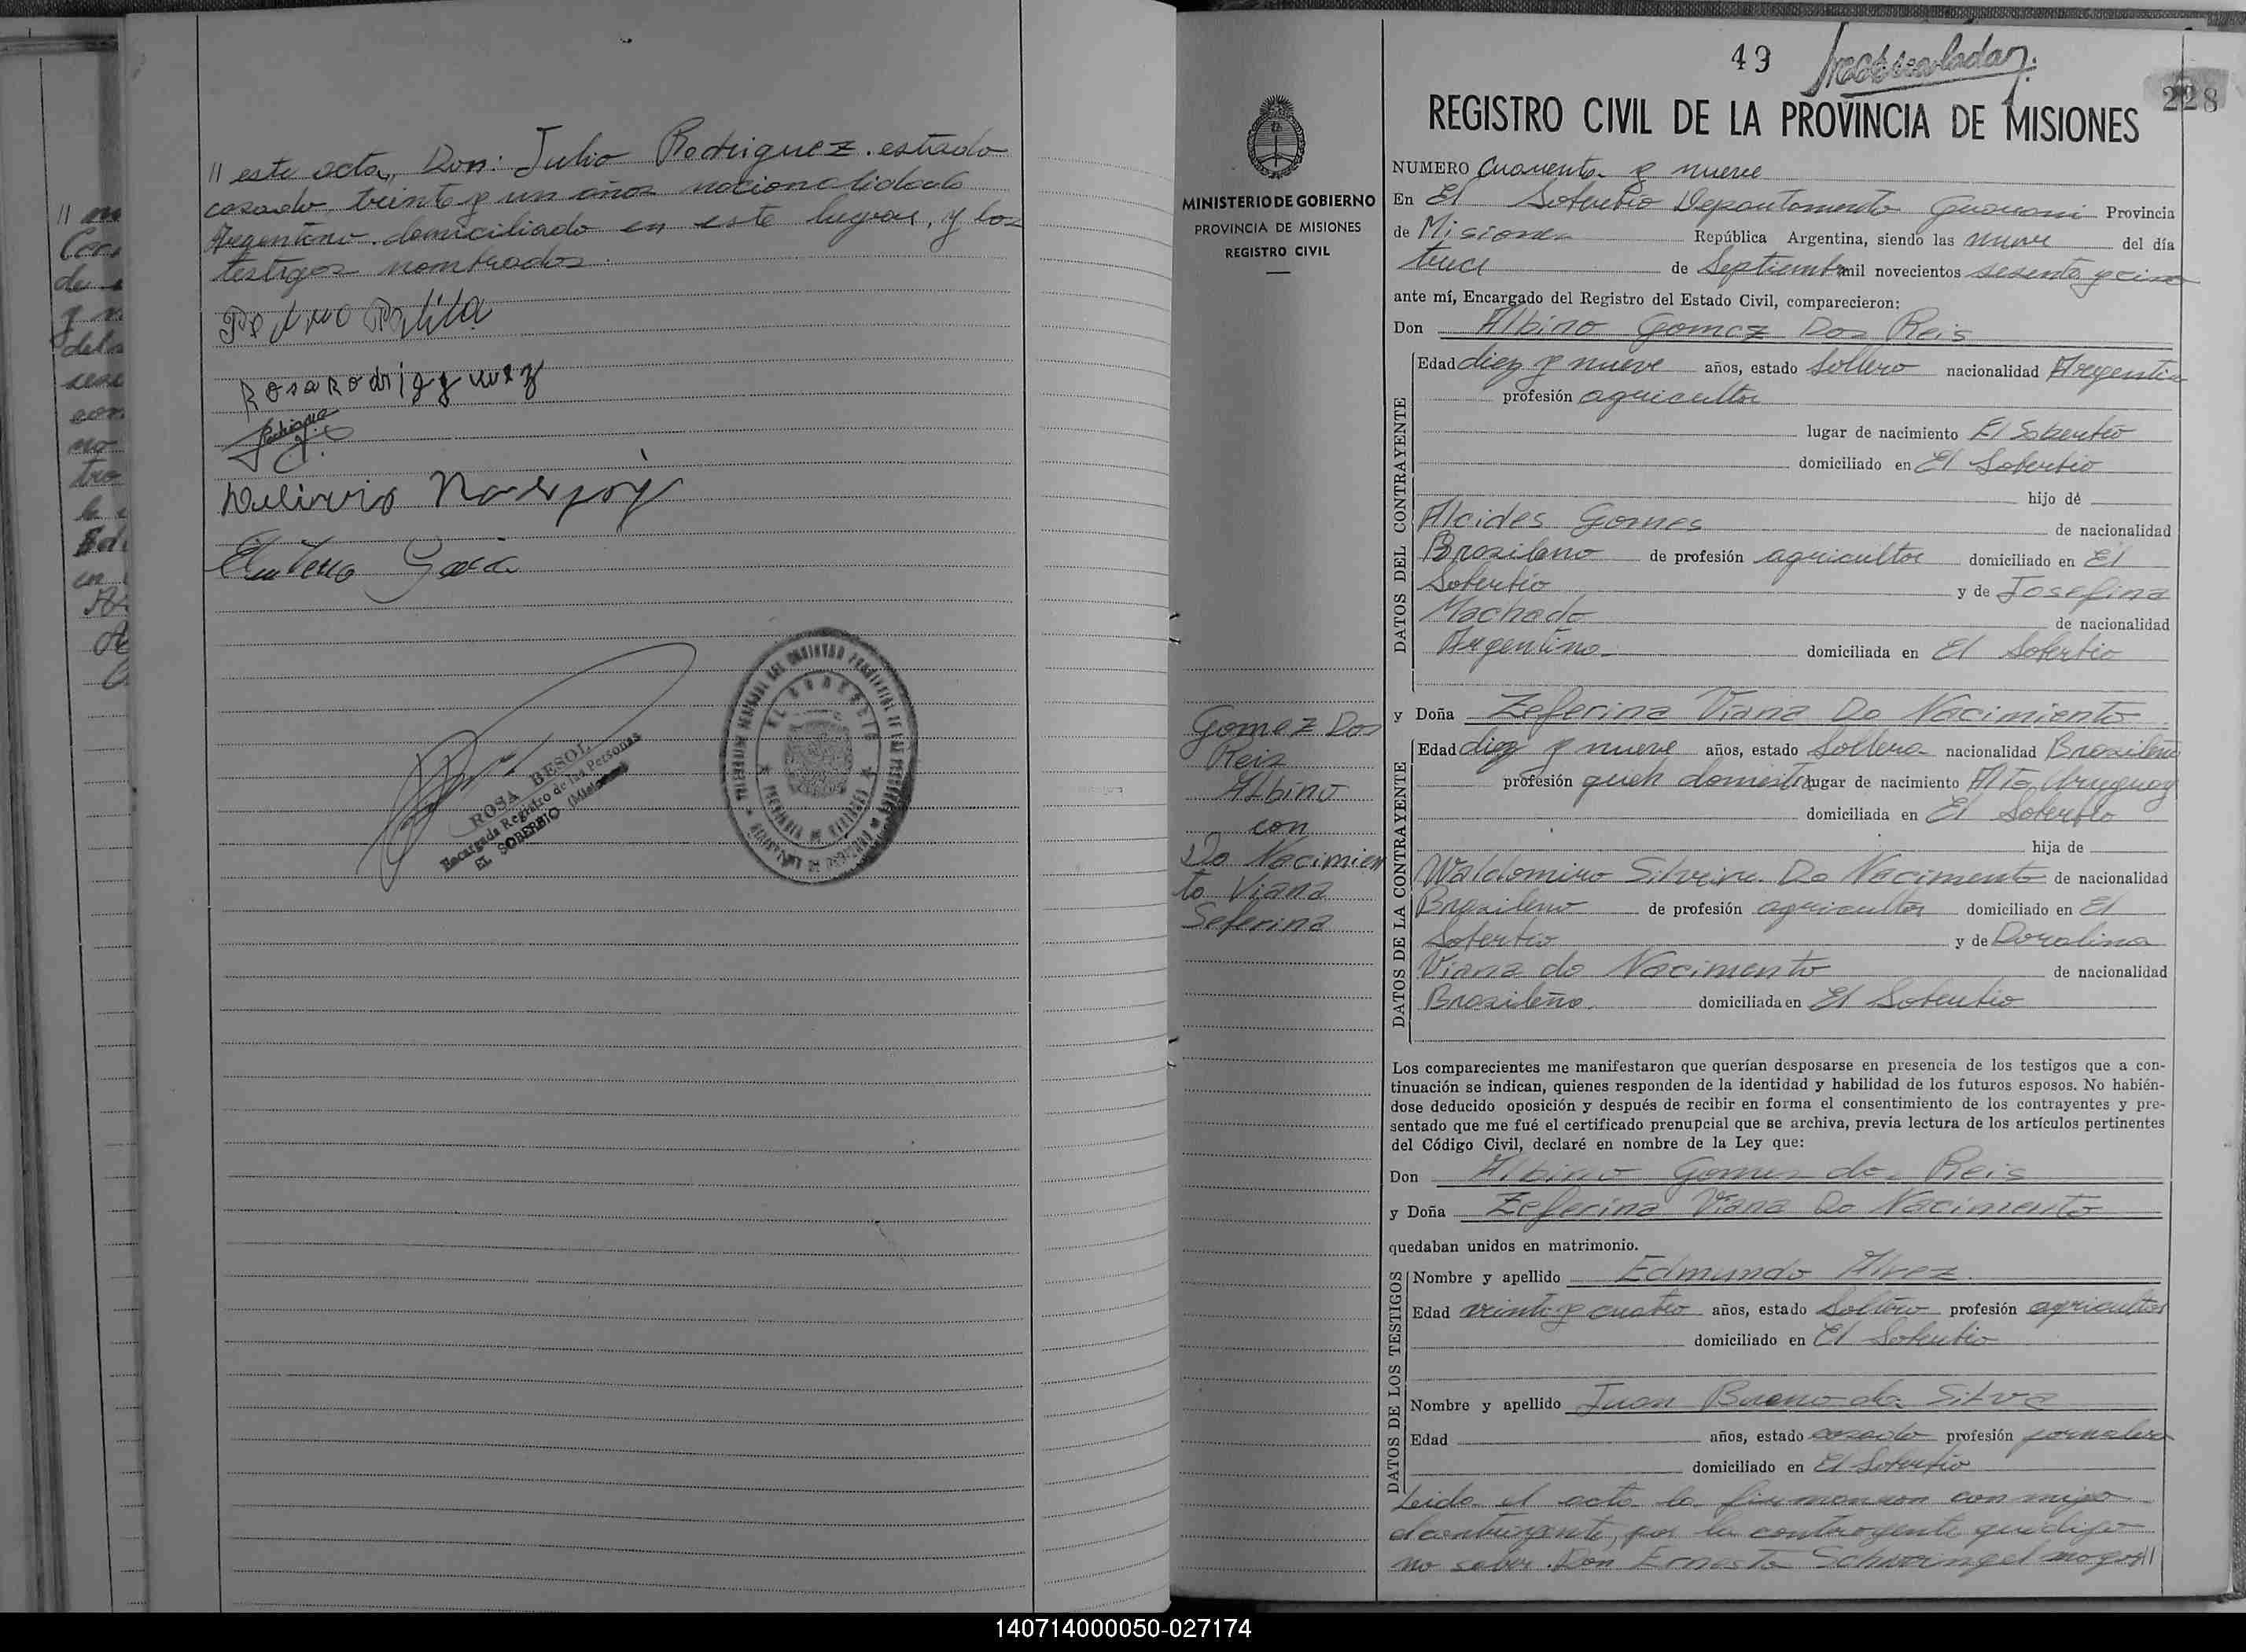 // este acta, Don: Julio Rodriguez. estado
casado treinta y un años nacionalidad
Argentino. domiciliado en este lugar, y los
testigos nombrados.
Rosa Rodrigguez
ROSA BESOL
Encargada Registro de las Personas
EL SOBERBIO (Misiones)
EL SOBERBIO
MINISTERIO DE GOBIERNO
PROVINCIA DE MISIONES
REGISTRO CIVIL
Gomez Dos
Reis
Albino
con
Do Nacimien
to Viana
Seferina
49
228
REGISTRO CIVIL DE LA PROVINCIA DE MISIONES
NUMERO Cuarenta y nueve
En El Soberbio Departamento Guarani Provincia
de Misiones República Argentina, siendo las nueve del día
trece de Septiembre mil novecientos sesenta y cinco
ante mí, Encargado del Registro del Estado Civil, comparecieron:
Don Albino Gomez Dos Reis
DATOS DEL CONTRAYENTE
Edad diez y nueve años, estado Soltero nacionalidad Argentina
profesión agricultor
lugar de nacimiento El Soberbio
domiciliado en El Soberbio
hijo de
Alcides Gomes de nacionalidad
Brasileno de profesión agricultor domiciliado en El
Soberbio y de Josefina
Machado de nacionalidad
Argentina domiciliada en El Soberbio
y Doña Zeferina Viana Do Nacimiento
DATOS DE LA CONTRAYENTE
Edad diez y nueve años, estado Soltera nacionalidad Brasileña
profesión queh domest. lugar de nacimiento Alto Uruguay
domiciliada en El Soberbio
hija de
Waldomiro Silveira Do Nacimento de nacionalidad
Brasileno de profesión agricultor domiciliado en El
Soberbio y de Doralina
Viana do Nacimento de nacionalidad
Brasileña. domiciliada en El Soberbio
Los comparecientes me manifestaron que querían desposarse en presencia de los testigos que a con-
tinuación se indican, quienes responden de la identidad y habilidad de los futuros esposos. No habién-
dose deducido oposición y después de recibir en forma el consentimiento de los contrayentes y pre-
sentado que me fué el certificado prenupcial que se archiva, previa lectura de los artículos pertinentes
del Código Civil, declaré en nombre de la Ley que:
Don Albino Gomes dos Reis
y Doña Zeferina Viana Do Nacimiento
quedaban unidos en matrimonio.
DATOS DE LOS TESTIGOS
Nombre y apellido Edmundo Alvez
Edad veinte y cuatro años, estado Soltero profesión agricultor
domiciliado en El Soberbio
Nombre y apellido Juan Bueno da Silva
Edad años, estado casado profesión jornalero
domiciliado en El Soberbio
Leida el acta la firmaron con migo
el contrayente, por la contrayente que dijo
no saber. Don Ernesto Schwingel mayor//
140714000050-027174